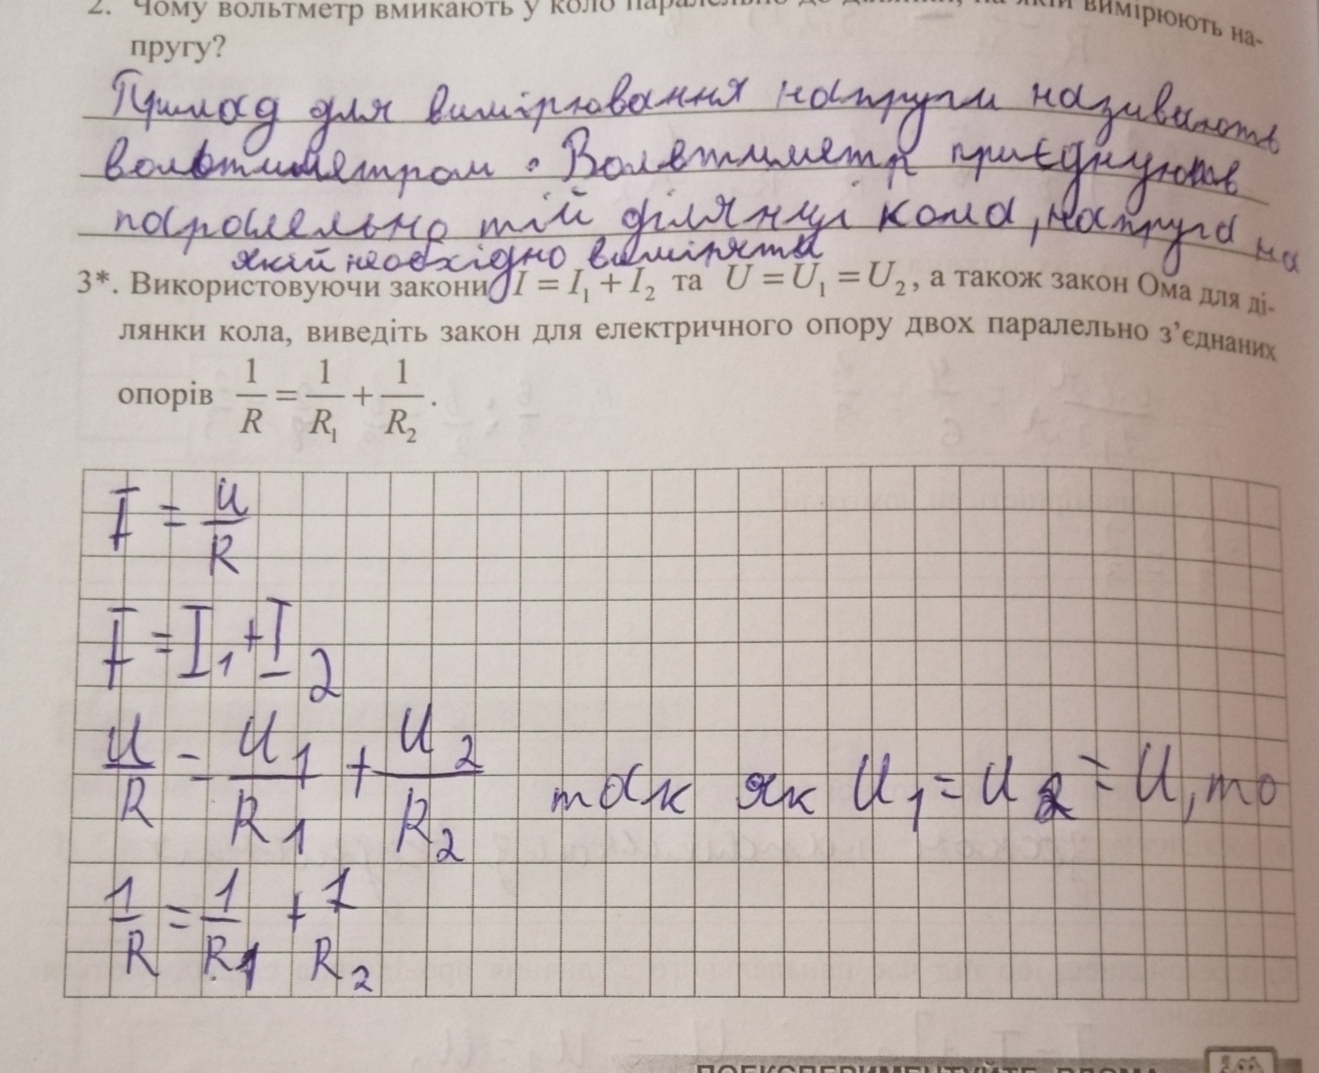 2. Чому вольтметр вмикають у коло паралельно до ділянки, на якій вимірюють на-
пругу?
Прилад для вимірювання напруги називають
вольтметром. Вольтметр приєднують
паралельно тій ділянці кола, напруга на
якій необхідно виміряти
3*. Використовуючи закони I = I₁ + I₂ та U = U₁ = U₂, а також закон Ома для ді-
лянки кола, виведіть закон для електричного опору двох паралельно з’єднаних
опорів 1/R = 1/R₁ + 1/R₂.
I = U/R
I = I₁ + I₂
U/R = U₁/R₁ + U₂/R₂ так як U₁ = U₂ = U, то
1/R = 1/R₁ + 1/R₂